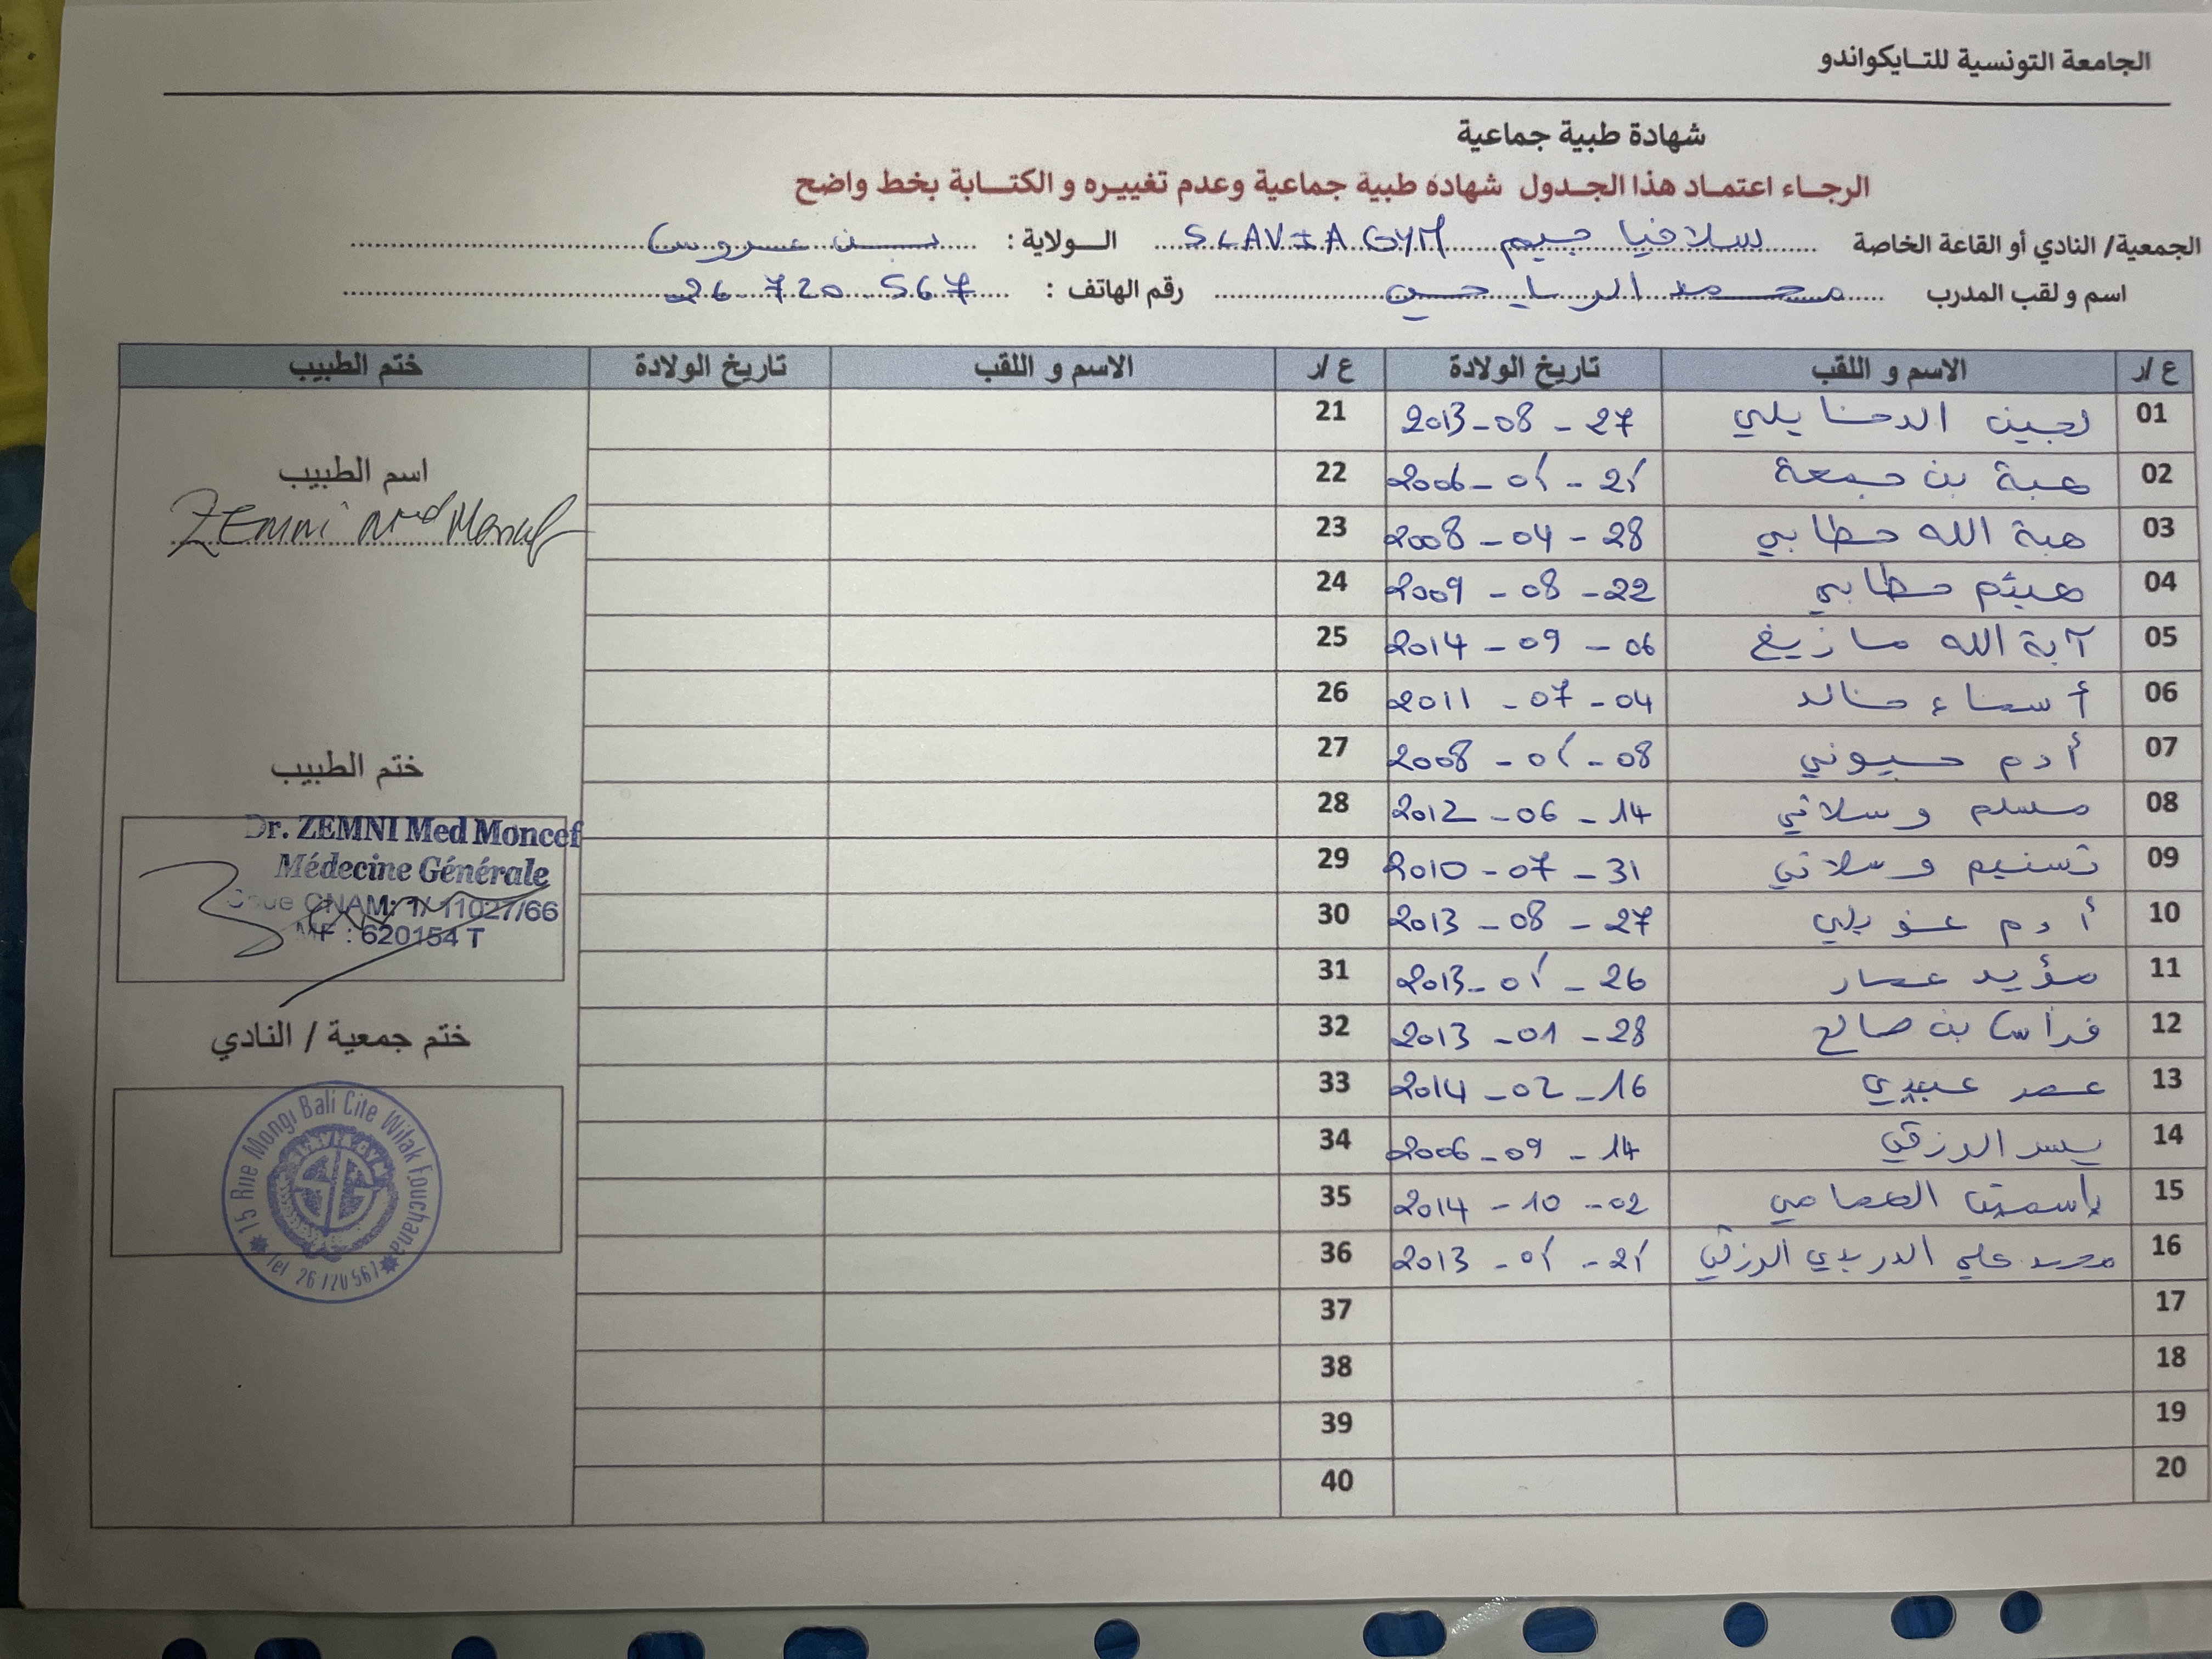 الجامعة التونسية للتايكواندو
شهادة طبية جماعية
الرجاء اعتماد هذا الجدول شهادة طبية جماعية وعدم تغييره و الكتابة بخط واضح
الجمعية/ النادي أو القاعة الخاصة سلافيا جيم SLAVIA GYM الولاية : بن عروس
اسم و لقب المدرب محمد الرياحي رقم الهاتف : 26 720 567
ع /ر الاسم و اللقب تاريخ الولادة ع /ر الاسم و اللقب تاريخ الولادة ختم الطبيب
01 لجين الدخايلي 27 - 08 - 2013 21
02 هبة بن جمعة 21 - 01 - 2006 22
03 هبة الله حطابي 28 - 04 - 2008 23
04 هيثم حطابي 22 - 08 - 2009 24
05 آية الله مازيغ 06 - 09 - 2014 25
06 أسماء خالد 04 - 07 - 2011 26
07 أدم حسيوني 08 - 01 - 2008 27
08 مسلم وسلاتي 14 - 06 - 2012 28
09 تسنيم وسلاتي 31 - 07 - 2010 29
10 أدم عويلي 27 - 08 - 2013 30
11 مؤيد عمار 26 - 01 - 2013 31
12 فراس بن صالح 28 - 01 - 2013 32
13 عمر عبيدي 16 - 02 - 2014 33
14 يسر الرزقي 14 - 09 - 2006 34
15 ياسمين 02 - 10 - 2014 35
16 محمد علي الدريدي الرزقي 21 - 01 - 2013 36
17 37
18 38
19 39
20 40
اسم الطبيب
ZEMNI Med Moncef
ختم الطبيب
Dr. ZEMNI Med Moncef
Médecine Générale
Code CNAM: 1/ 11027/66
MF : 620154 T
ختم جمعية / النادي
15 Rue Mongi Bali Cite Wifak Fouchana
Tel 26 720 567
SLAVIA GYM
SG